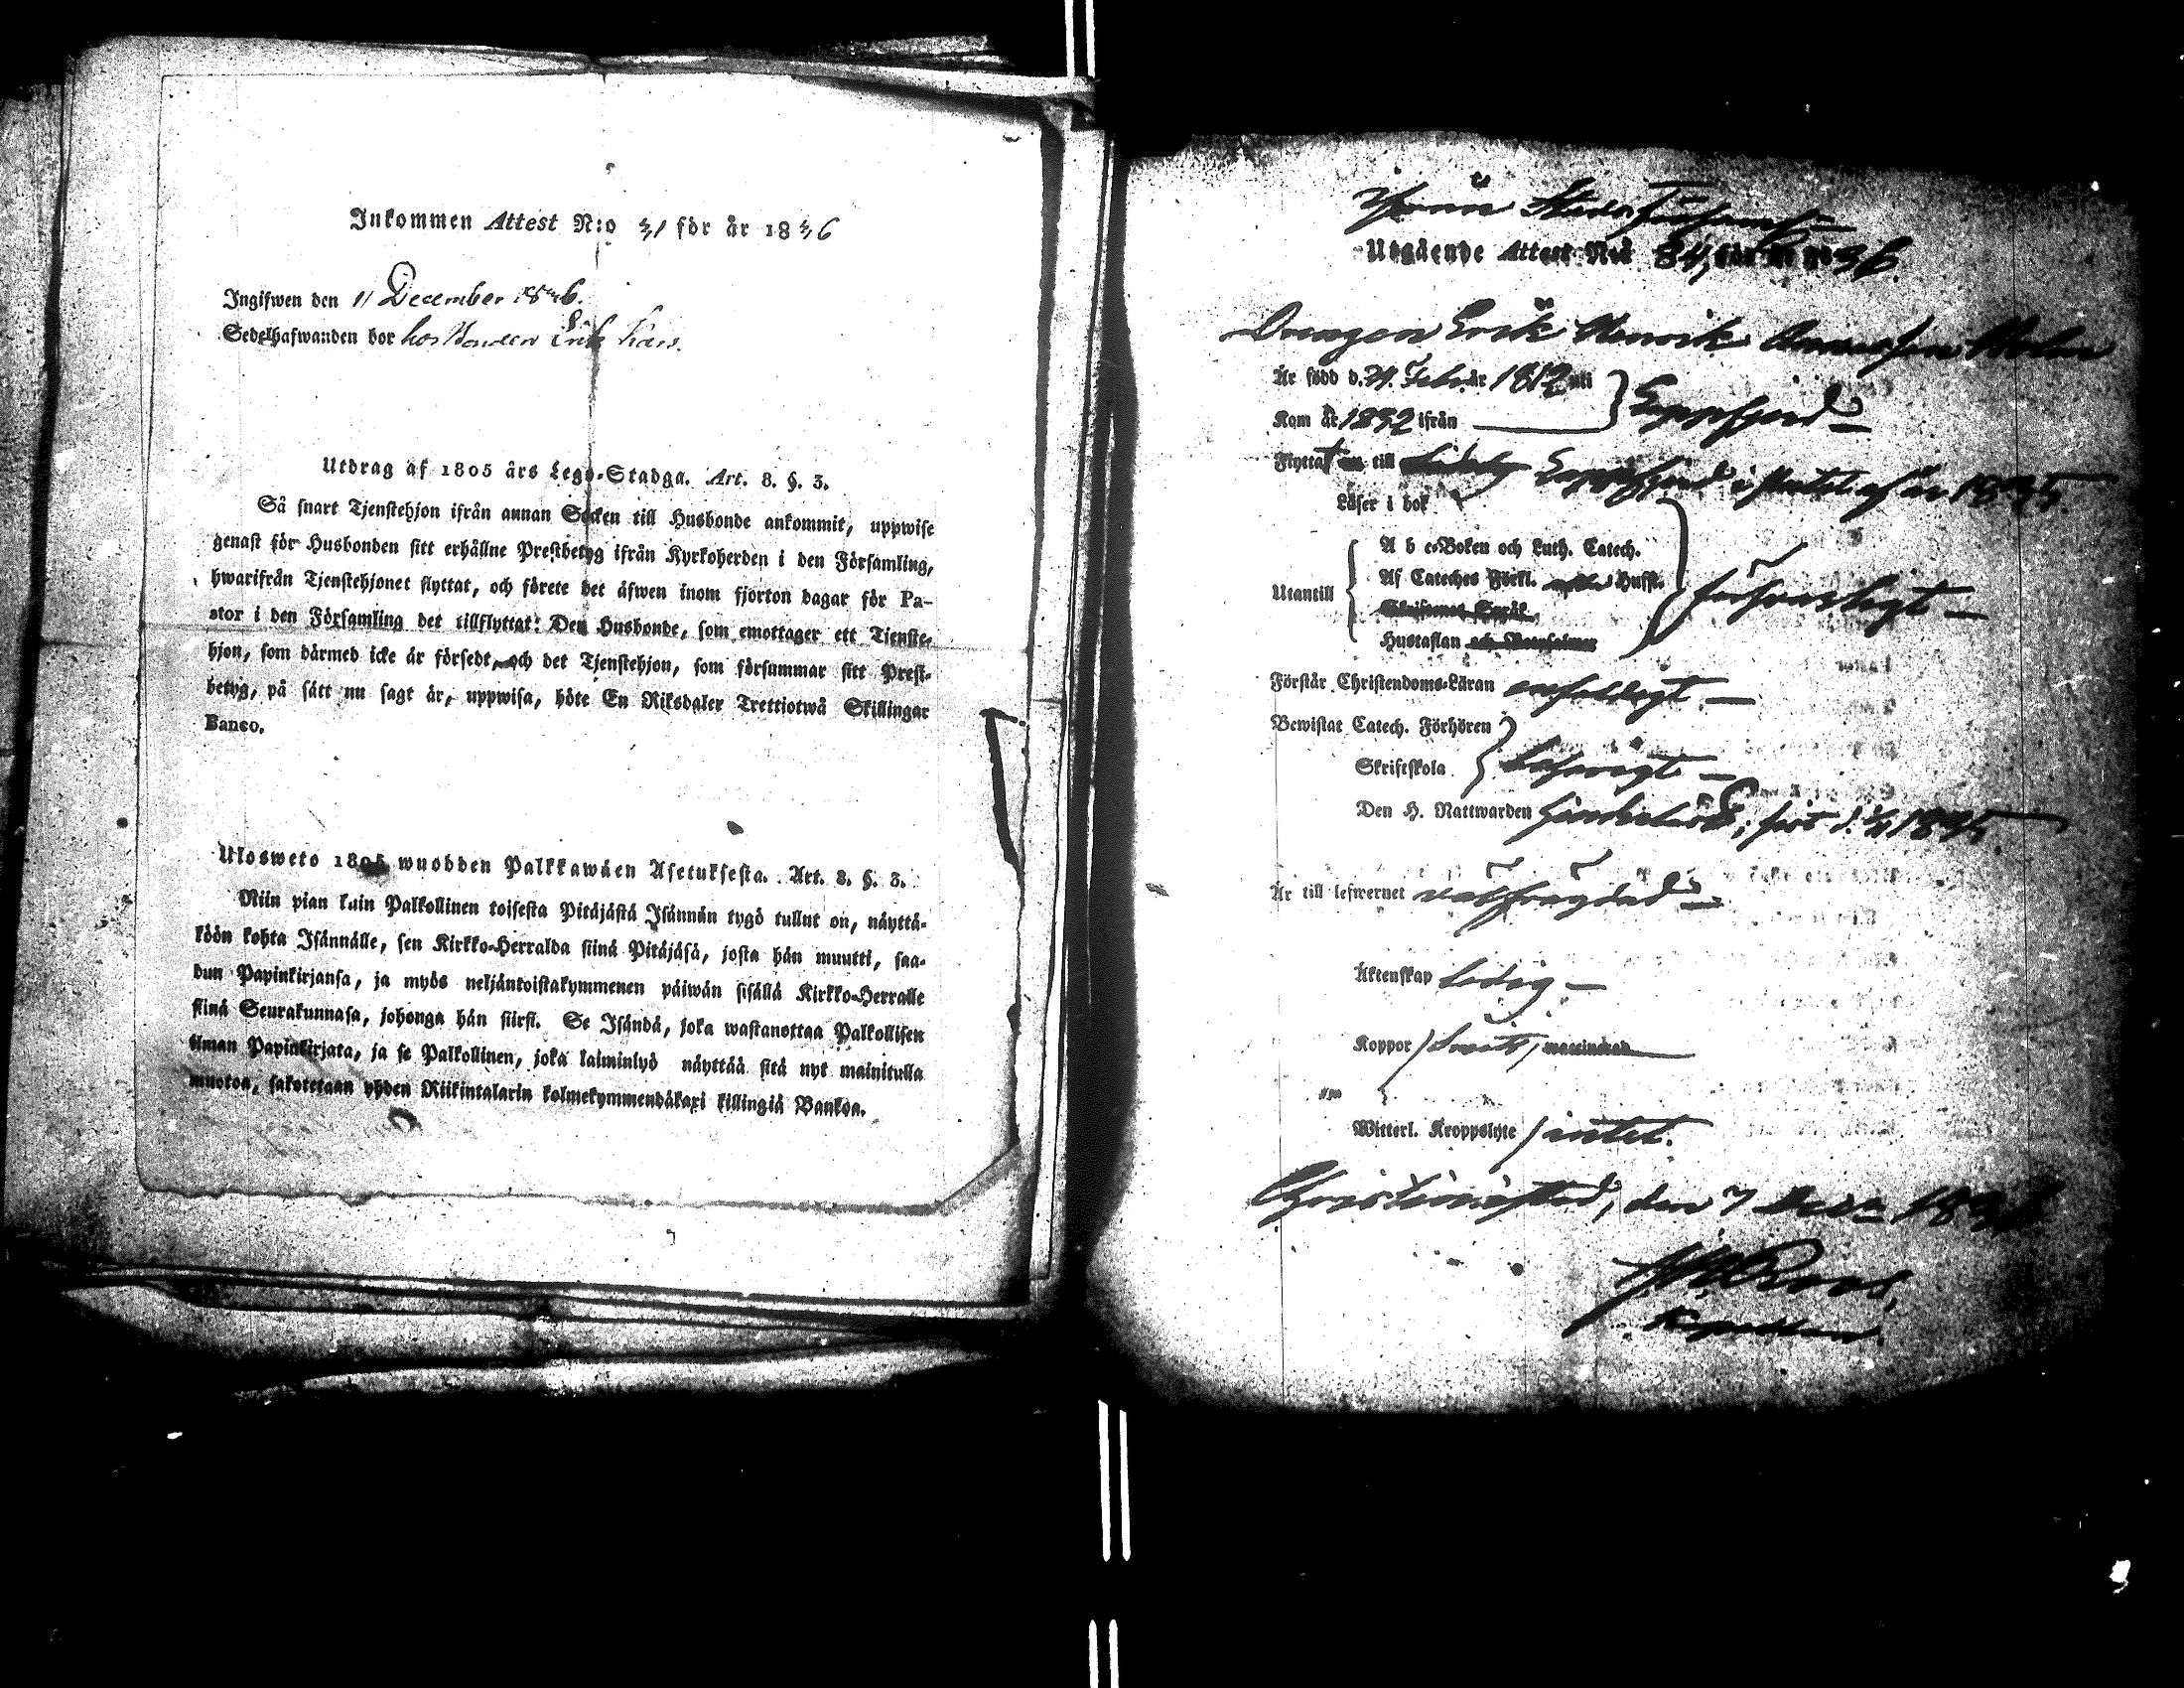 Inkommen Attest N:o 31 för år 1836
Ingifwen den 11 December 1836.
Sedelhafwanden bor hos Bonden Erik
Utdrag af 1805 års Lego-Stadga. Art. 8. §. 3.
Så snart Tjenstehjon ifrån annan Socken till Husbonde ankommit, uppwise
genast för Husbonden sitt erhållne Prestbetyg ifrån Kyrkoherden i den Församling,
hwarifrån Tjenstehjonet flyttat, och förete det äfwen inom fjorton dagar för Pa-
stor i den Församling det tillflyttat: Den Husbonde, som emottager ett Tienste-
hjon, som därmed icke är försedt, och det Tjenstehjon, som försummar sitt Prest-
betyg, på sätt nu sagt är, uppwisa, böte En Riksdaler Trettiotwå Skillingar
Banco.
Ulosweto 1805 wuodden Palkkawäen Asetuksesta. Art. 8. §. 3.
Niin pian kuin Palkollinen toisesta Pitäjästä Isännän tygö tullut on, näyttä-
köön kohta Isännälle, sen Kirkko-Herralda siinä Pitäjäsä, josta hän muutti, saa-
dun Papinkirjansa, ja myös neljäntoistakymmenen päiwän sisällä Kirkko-Herralle
siinä Seurakunnasa, johonga hän siirsi. Se Isändä, joka wastanottaa Palkollisen
ilman Papinkirjata, ja se Palkollinen, joka laiminlyö näyttää sitä nyt mainitulla
muotoa, sakotetaan yhden Riikintalarin kolmekymmendäkaxi killingiä Bankoa.
Utgående Attest N:o 84, för år 1836
Drengen Erik Henrik Holm
Är född d. 21 Febr. år 1812 uti
Kom år 1832 ifrån } Lappfjerd
Flyttat till Lappfjerd i slutet af år 1835.
Läser i bok
Utantill
A b c-Boken och Luth. Catech.
Af Cateches Förkl. Husst.
Skrifenes Språk
Hustaflan och Botpsalmer
försvarligt
Förstår Christendoms-Läran enfaldigt
Bewistat Catech. Förhören
Skriftskola
Den H. Nattwarden 1835.
Är till lefwernet välfrägdad
Äktenskap ledig
Koppor haft, vaccinerad
Witterl. Kroppslyte intet.
Christinæstad, den 7 Decbr 1836
Roos,
Kapellan.